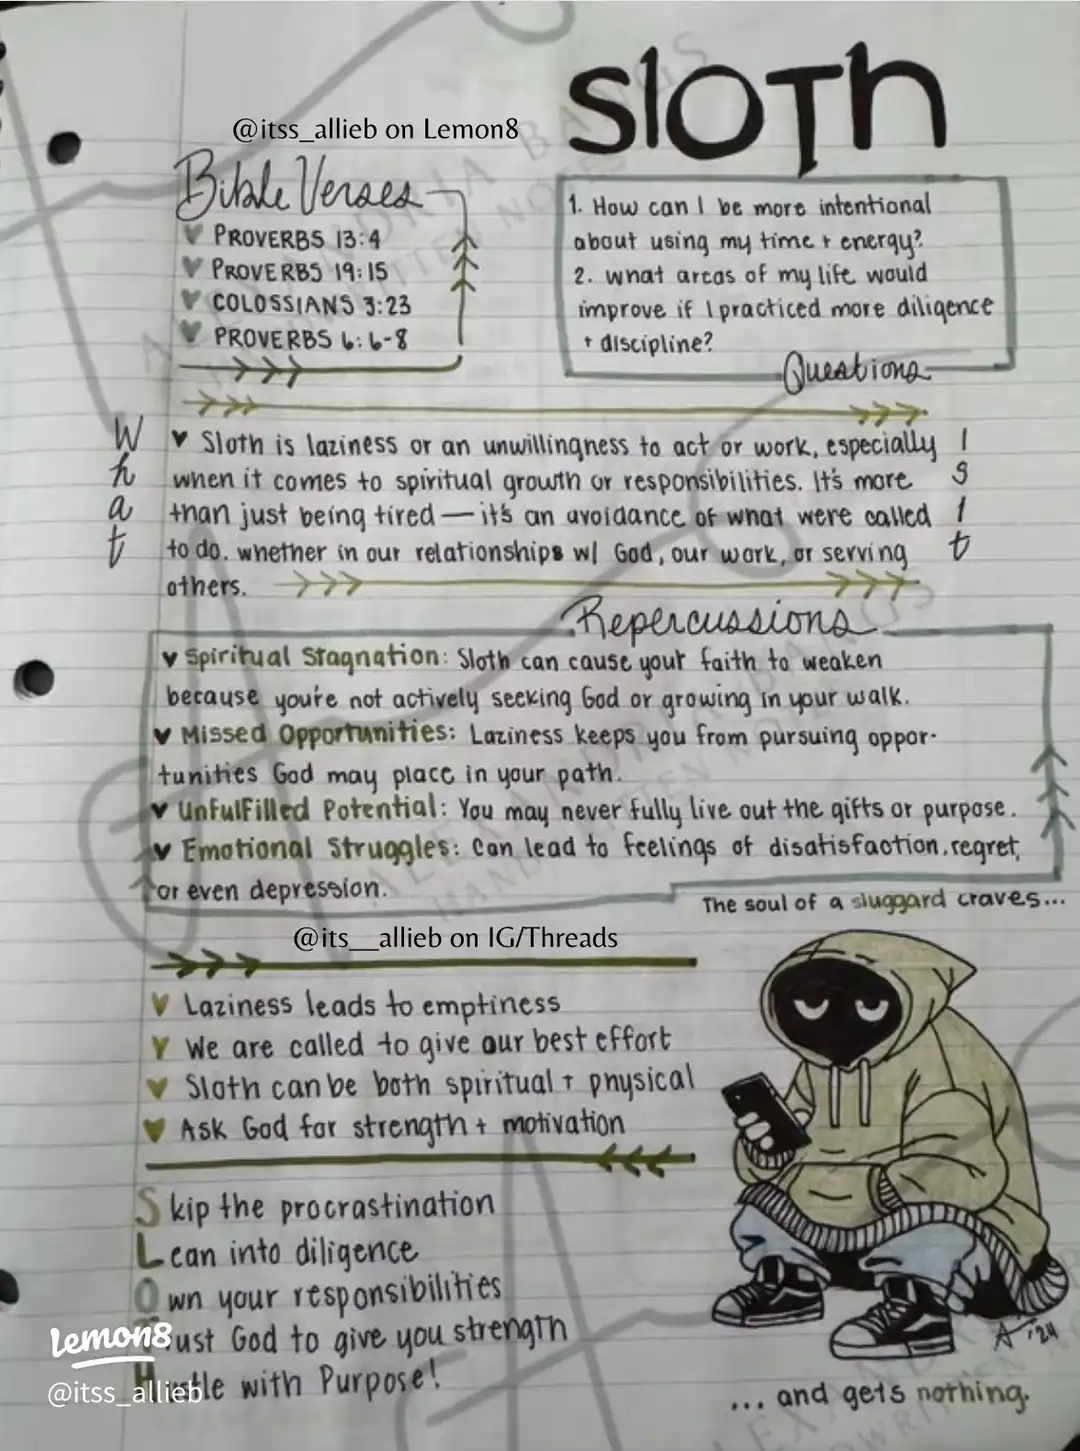 sloth
@itss_allieb on Lemon8
Bible Verses
♥ PROVERBS 13:4
♥ PROVERBS 19:15
♥ COLOSSIANS 3:23
♥ PROVERBS 6:6-8
1. How can I be more intentional
about using my time + energy?
2. What areas of my life would
improve if I practiced more diligence
+ discipline?
Questions
What Is It
♥ Sloth is laziness or an unwillingness to act or work, especially
when it comes to spiritual growth or responsibilities. It's more
than just being tired — it's an avoidance of what were called
to do. whether in our relationships w/ God, our work, or serving
others.
Repercussions
♥ Spiritual Stagnation: Sloth can cause your faith to weaken
because you're not actively seeking God or growing in your walk.
♥ Missed Opportunities: Laziness keeps you from pursuing oppor-
tunities God may place in your path.
♥ Unfulfilled Potential: You may never fully live out the gifts or purpose.
♥ Emotional Struggles: Can lead to feelings of disatisfaction, regret,
or even depression.
The soul of a sluggard craves...
@its__allieb on IG/Threads
♥ Laziness leads to emptiness
♥ We are called to give our best effort
♥ Sloth can be both spiritual + physical
♥ Ask God for strength + motivation
Skip the procrastination
Lean into diligence
Own your responsibilities
Trust God to give you strength
Hustle with Purpose!
A '24
... and gets nothing.
Lemon8
@itss_allieb